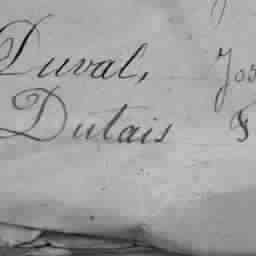 Duval, Jos
Dutais F